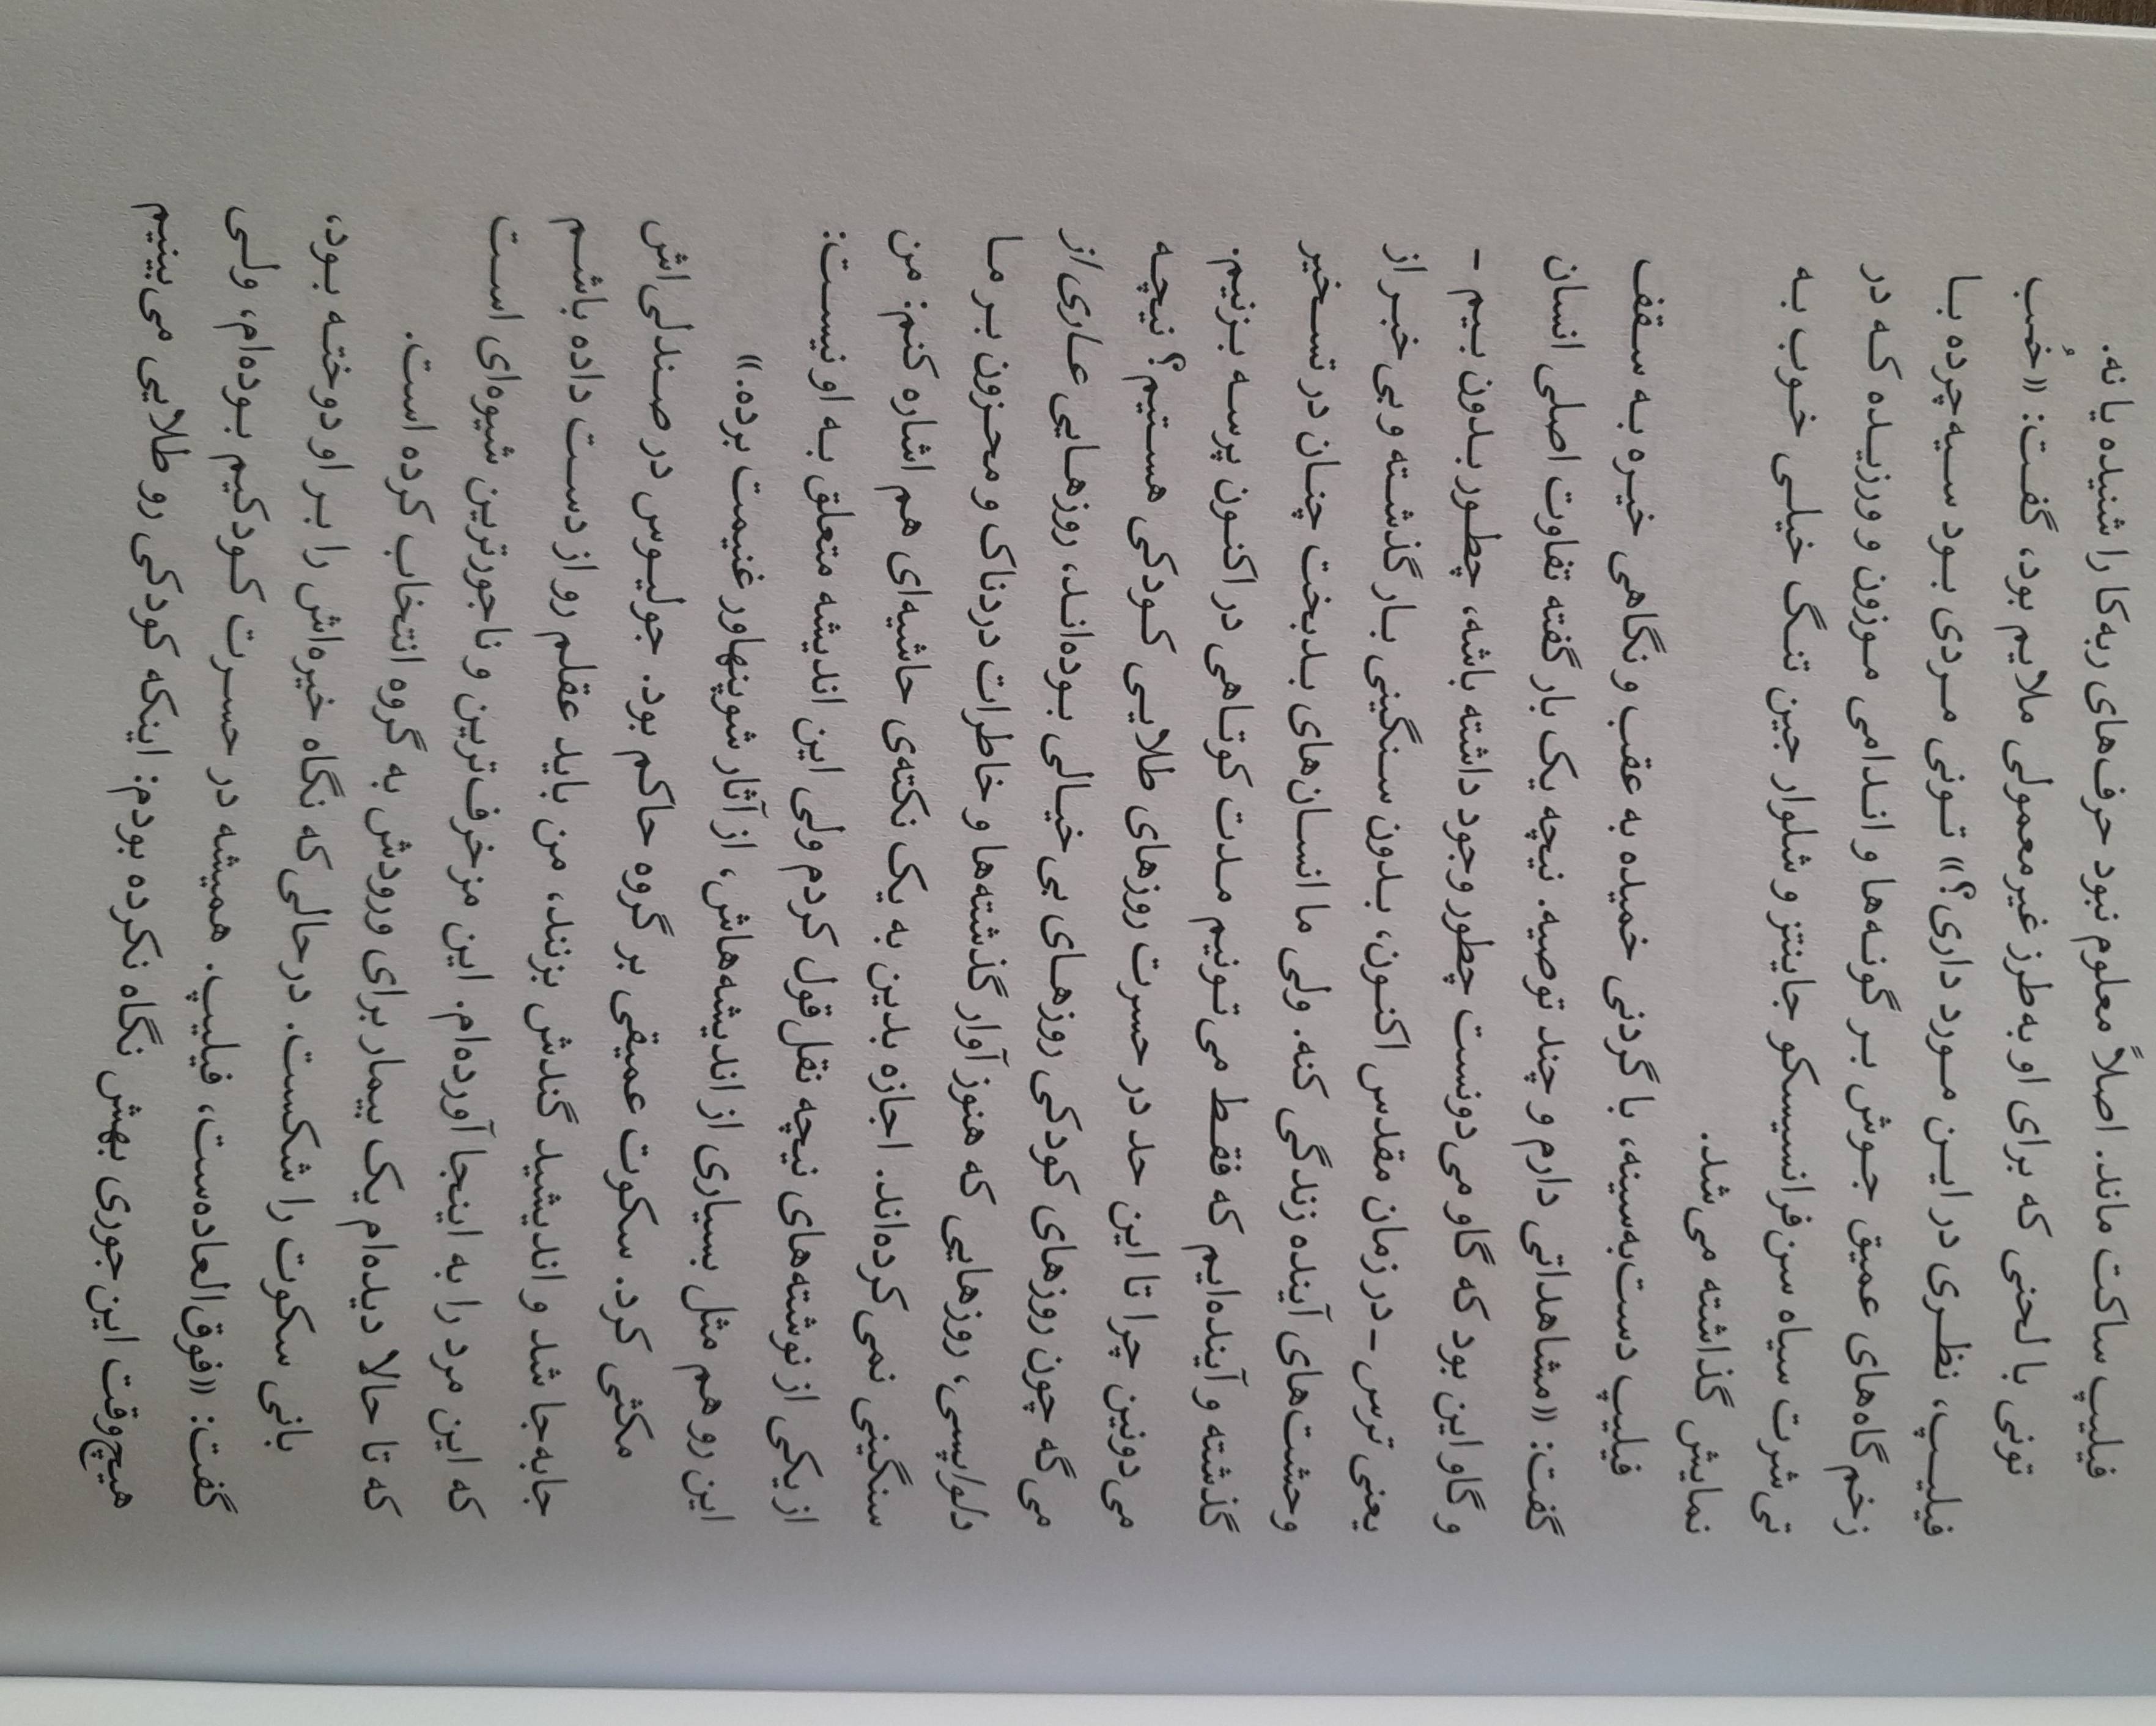 فیلیپ ساکت ماند. اصلاً معلوم نبود حرف‌های ربه‌کا را شنیده یا نه.
تونی با لحنی که برای او به‌طرز غیرمعمولی ملایم بود، گفت: «خُب
فیلیپ، نظری در این مورد داری؟» تونی مردی بود سیه‌چرده با
زخم‌گاه‌های عمیق جوش بر گونه‌ها و اندامی موزون و ورزیده که در
تی‌شرت سیاه سن‌فرانسیسکو جاینتز و شلوار جین تنگ خیلی خوب به
نمایش گذاشته می‌شد.
فیلیپ دست‌به‌سینه، با گردنی خمیده به عقب و نگاهی خیره به سقف
گفت: «مشاهداتی دارم و چند توصیه. نیچه یک بار گفته تفاوت اصلی انسان
و گاو این بود که گاو می‌دونست چطور وجود داشته باشه، چطور بدون بیم -
یعنی ترس - در زمان مقدس اکنون، بدون سنگینی بار گذشته و بی‌خبر از
وحشت‌های آینده زندگی کنه. ولی ما انسان‌های بدبخت چنان در تسخیر
گذشته و آینده‌ایم که فقط می‌تونیم مدت کوتاهی در اکنون پرسه بزنیم.
می‌دونین چرا تا این حد در حسرت روزهای طلایی کودکی هستیم؟ نیچه
می‌گه چون روزهای کودکی روزهای بی‌خیالی بوده‌اند، روزهایی عاری از
دلواپسی، روزهایی که هنوز آوار گذشته‌ها و خاطرات دردناک و محزون بر ما
سنگینی نمی‌کرده‌اند. اجازه بدین به یک نکته‌ی حاشیه‌ای هم اشاره کنم: من
از یکی از نوشته‌های نیچه نقل‌قول کردم ولی این اندیشه متعلق به او نیست:
این رو هم مثل بسیاری از اندیشه‌هاش، از آثار شوپنهاور غنیمت برده.»
مکثی کرد. سکوت عمیقی بر گروه حاکم بود. جولیوس در صندلی‌اش
جابه‌جا شد و اندیشید گندش بزنند، من باید عقلم رو از دست داده باشم
که این مرد را به اینجا آورده‌ام. این مزخرف‌ترین و ناجورترین شیوه‌ای است
که تا حالا دیده‌ام یک بیمار برای ورودش به گروه انتخاب کرده است.
بانی سکوت را شکست. درحالی‌که نگاه خیره‌اش را بر او دوخته بود،
گفت: «فوق‌العاده‌ست، فیلیپ. همیشه در حسرت کودکیم بوده‌ام، ولی
هیچ‌وقت این‌جوری بهش نگاه نکرده بودم: اینکه کودکی رو طلایی می‌بینیم